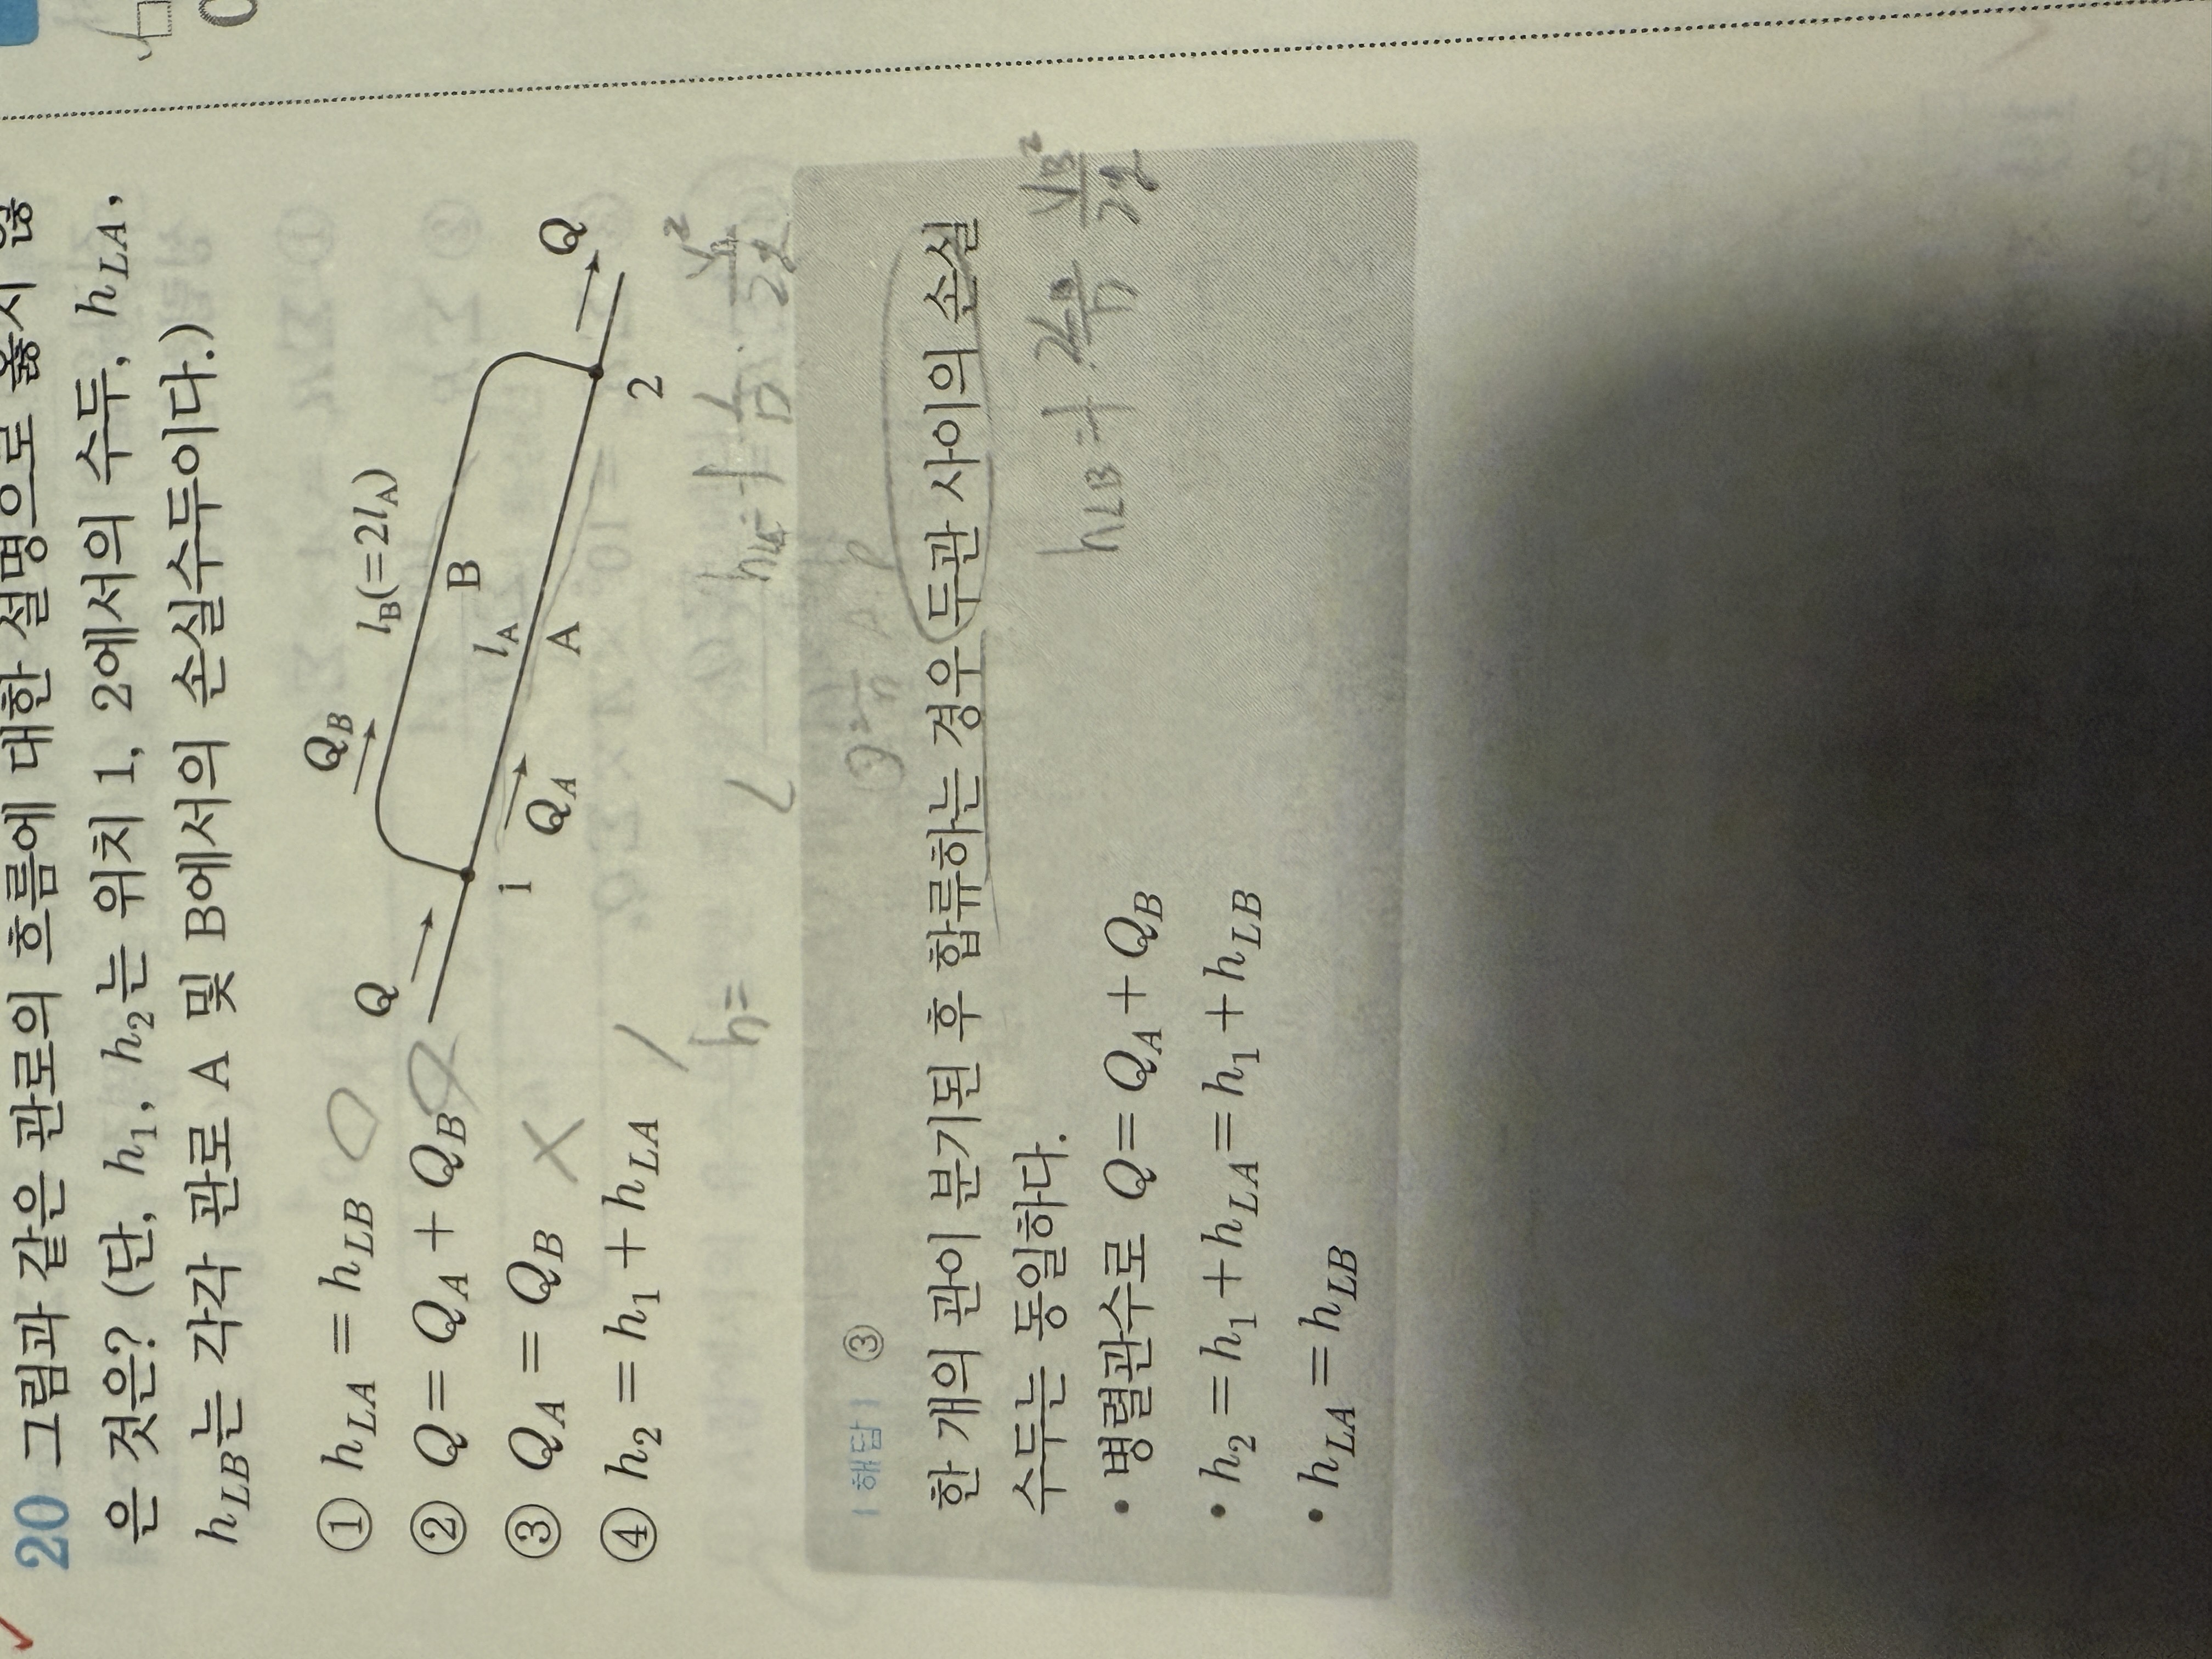 20 그림과 같은 관로의 흐름에 대한 설명으로 옳지 않
은 것은? (단, h₁, h₂는 위치 1, 2에서의 수두, h_LA,
h_LB는 각각 관로 A 및 B에서의 손실수두이다.)
Q
Q_B
l_B(=2l_A)
B
l_A
A
Q_A
1
2
Q
① h_LA = h_LB ○
② Q = Q_A + Q_B
③ Q_A = Q_B ×
④ h₂ = h₁ + h_LA
h =
| 해답 | ③
한 개의 관이 분기된 후 합류하는 경우 두관 사이의 손실
수두는 동일하다.
• 병렬관수로 Q = Q_A + Q_B
• h₂ = h₁ + h_LA = h₁ + h_LB
• h_LA = h_LB